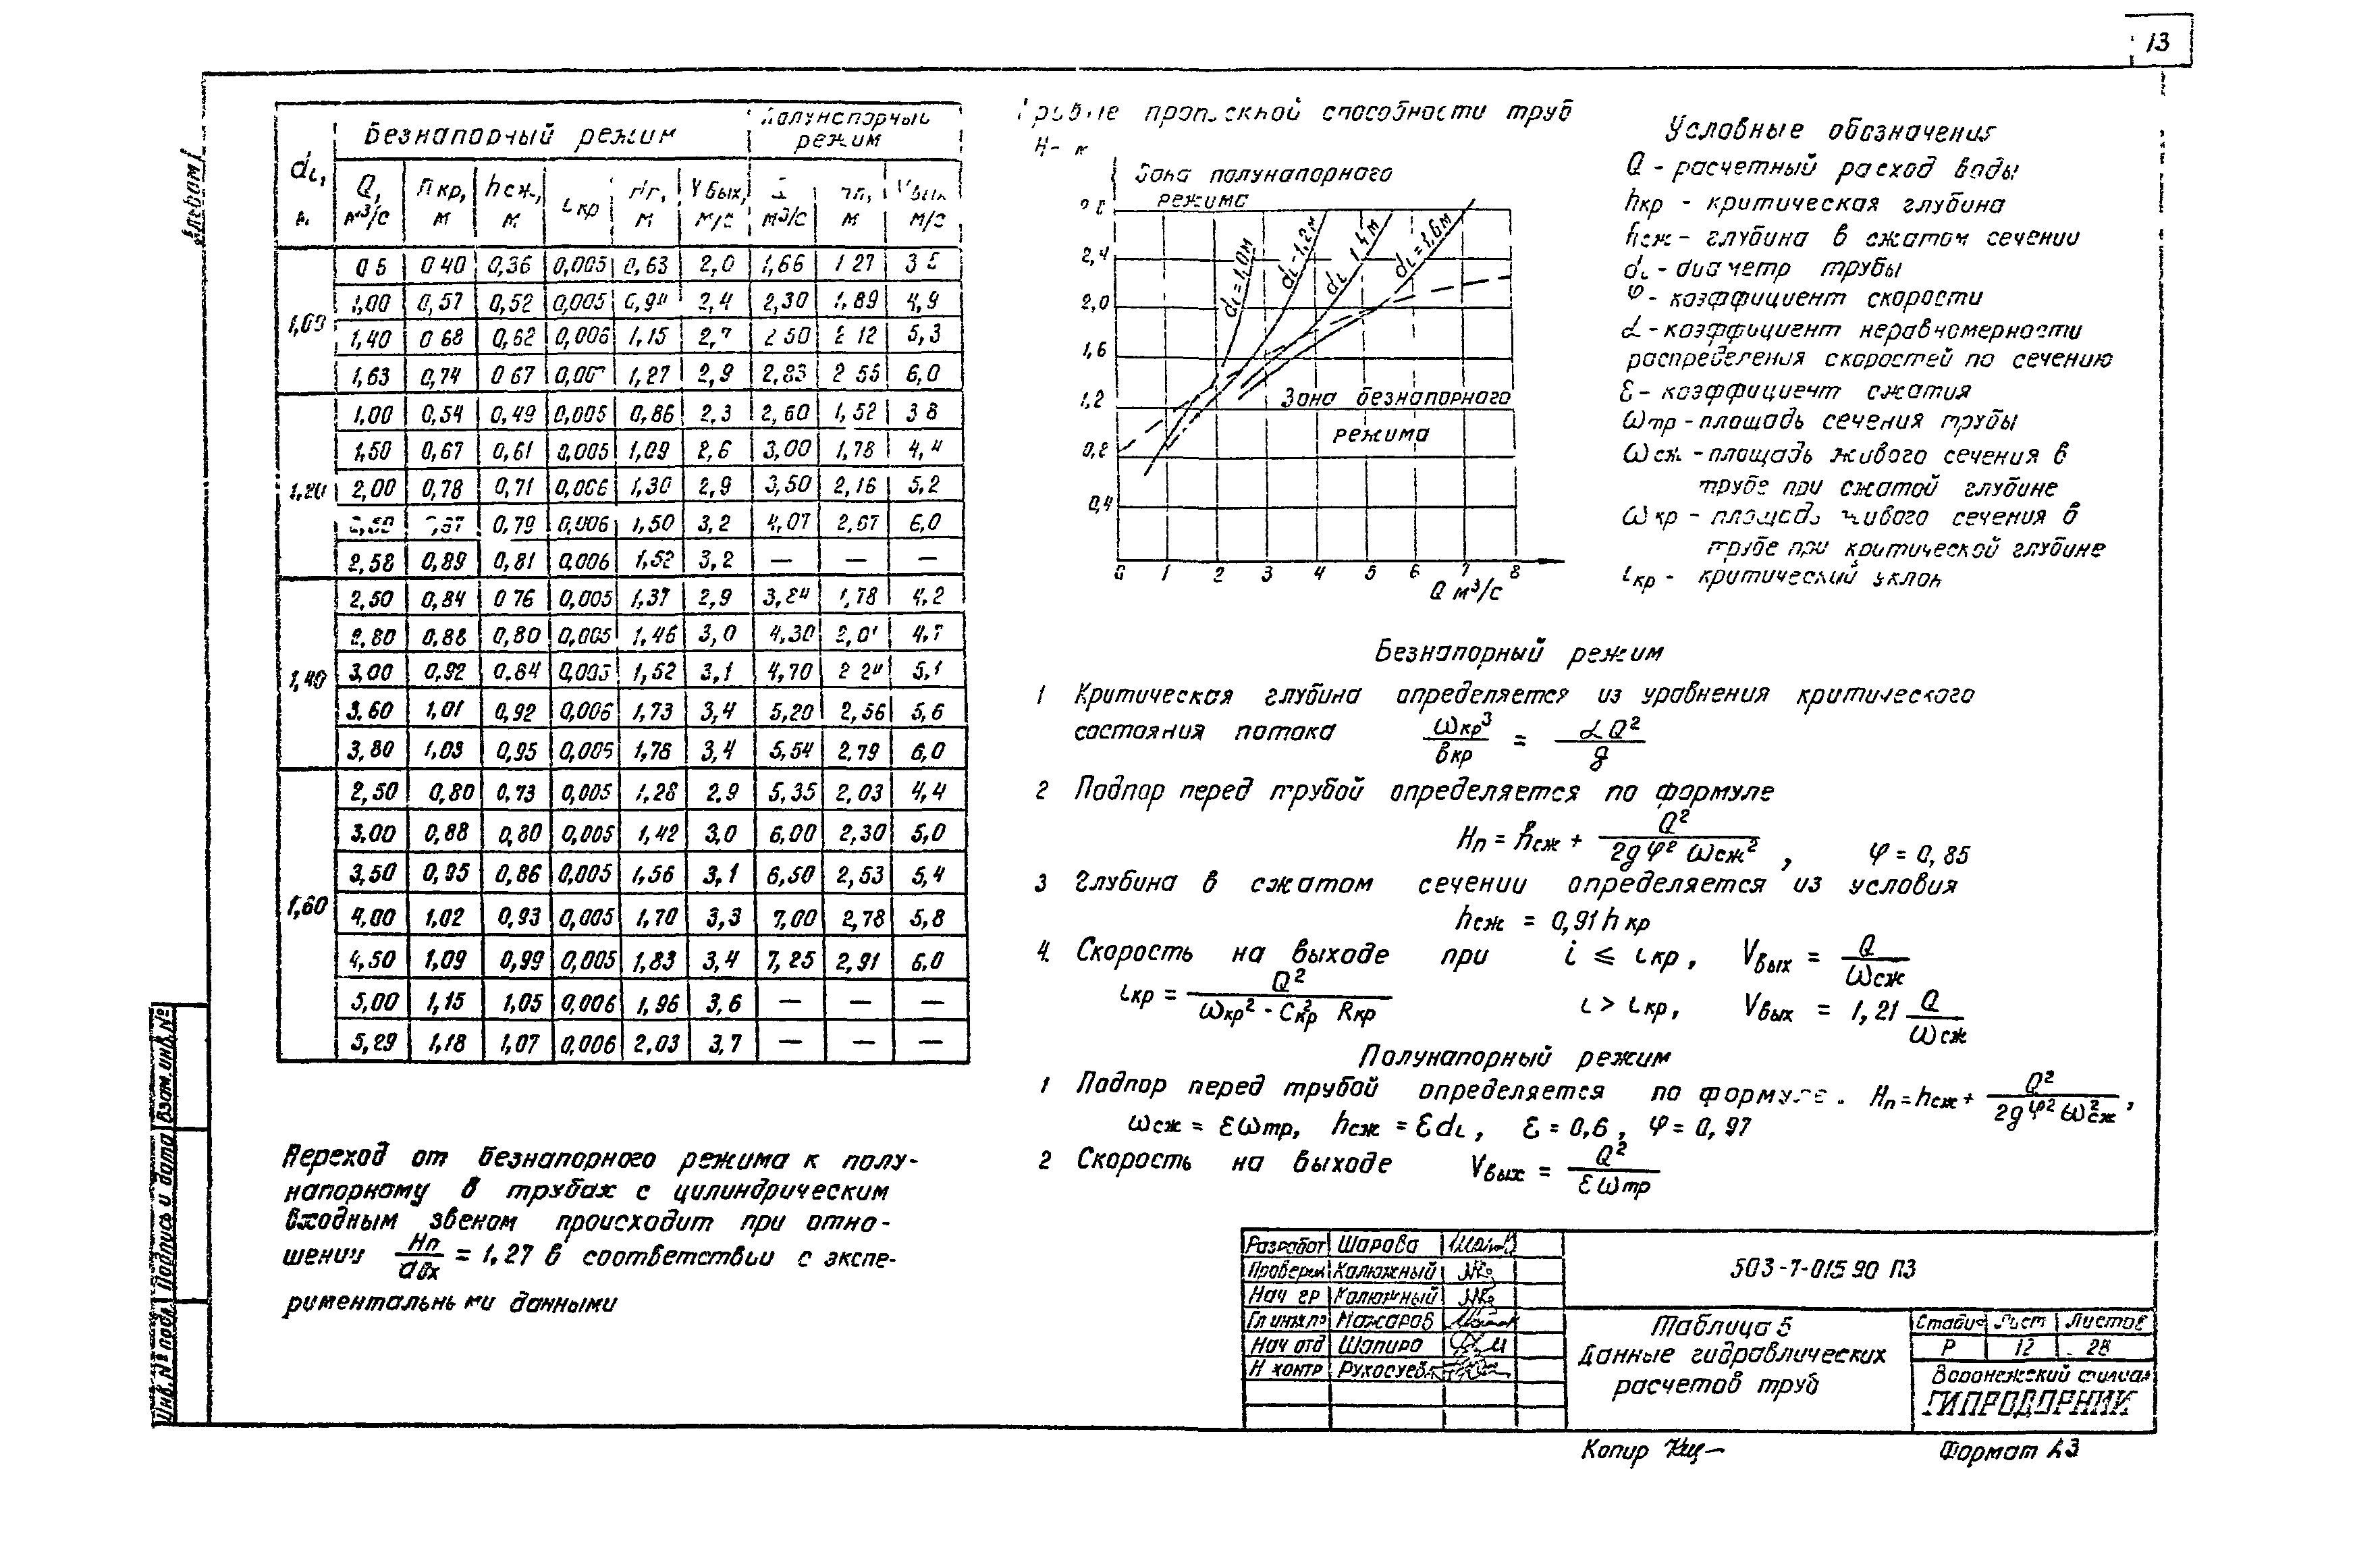 13
Альбом 1
di, м
Безнапорный режим
Полунапорный режим
Q, м³/с | hкр, м | hсж, м | iкр | Нп, м | Vвых, м/с | Q м³/с | Нп, м | Vвых м/с
0 6 | 0 40 | 0,36 | 0,005 | 0,63 | 2,0 | 1,66 | 1 27 | 3
1,00 | 0,57 | 0,52 | 0,005 | 0,94 | 2,4 | 2,30 | 1,89 | 4,9
1,40 | 0 68 | 0,62 | 0,006 | 1,15 | 2,7 | 2 50 | 2 12 | 5,3
1,63 | 0,74 | 0 67 | 1,27 | 2,9 | 2,83 | 2 55 | 6,0
1,00 | 0,54 | 0,49 | 0,005 | 0,86 | 2.3 | 2,60 | 1,52 | 3 8
1,20 | 1,50 | 0,67 | 0,61 | 0,005 | 1,09 | 2,6 | 3,00 | 1,78 | 4,4
2,00 | 0,78 | 0,71 | 0,006 | 1,30 | 2,9 | 3,50 | 2,16 | 5,2
0,79 | 0,006 | 1,50 | 3,2 | 4,07 | 2,67 | 6,0
2,58 | 0,89 | 0,81 | 0,006 | 1,52 | 3,2 | — | — | —
2,50 | 0,84 | 0 76 | 0,005 | 1,37 | 2,9 | 3,84 | 1,78 | 4,2
2,80 | 0,88 | 0,80 | 0,005 | 1,46 | 3,0 | 4,30 | 2,01 | 4,7
1,40 | 3,00 | 0,92 | 0.84 | 0,005 | 1,52 | 3,1 | 4,70 | 2 24 | 5,1
3.60 | 1,01 | 0,92 | 0,006 | 1,73 | 3,4 | 5,20 | 2,56 | 5,6
3,80 | 1,03 | 0,95 | 0,005 | 1,78 | 3,4 | 5,54 | 2.79 | 6,0
2,50 | 0,80 | 0,73 | 0,005 | 1,28 | 2.9 | 5,35 | 2,03 | 4,4
3,00 | 0,88 | 0,80 | 0,005 | 1,42 | 3,0 | 6,00 | 2,30 | 5,0
3,50 | 0,95 | 0,86 | 0,005 | 1,56 | 3,1 | 6,50 | 2,53 | 5,4
1,60 | 4,00 | 1,02 | 0,93 | 0,005 | 1,70 | 3,3 | 7,00 | 2,78 | 5,8
4,50 | 1,09 | 0,99 | 0,005 | 1,83 | 3,4 | 7,25 | 2,91 | 6.0
5,00 | 1,15 | 1,05 | 0,006 | 1,96 | 3,6 | — | — | —
5,29 | 1,18 | 1,07 | 0,006 | 2,03 | 3,7 | — | — | —
Переход от безнапорного режима к полу-
напорному в трубах с цилиндрическим
входным звеном происходит при отно-
шении Нп/dвх = 1,27 в соответствии с экспе-
риментальными данными
График пропускной способности труб
Зона полунапорного
режима
di=1,0м
di-1,2м
di 1,4м
di=1,6м
2,4
2,0
1,6
1,2
0,8
0,4
Зона безнапорного
режима
0 1 2 3 4 5 6 7 8
Q м³/с
Условные обозначения
Q - расчетный расход воды
hкр - критическая глубина
hсж - глубина в сжатом сечении
di - диаметр трубы
φ - коэффициент скорости
α - коэффициент неравномерности
распределения скоростей по сечению
ε - коэффициент сжатия
ωтр - площадь сечения трубы
ωсж - площадь живого сечения в
трубе при сжатой глубине
ωкр - площадь живого сечения в
трубе при критической глубине
iкр - критический уклон
Безнапорный режим
1 Критическая глубина определяется из уравнения критического
состояния потока ωкр³/вкр = αQ²/g
2 Подпор перед трубой определяется по формуле
Нп = hсж + Q²/2gφ²ωсж², φ = 0,85
3 Глубина в сжатом сечении определяется из условия
hсж = 0,91hкр
4. Скорость на выходе при i ≤ iкр, Vвых = Q/ωсж
iкр = Q²/ωкр²·Cкр² Rкр i > iкр, Vвых = 1,21 Q/ωсж
Полунапорный режим
1 Подпор перед трубой определяется по формуле. Нп = hсж + Q²/2gφ²ω²сж,
ωсж = εωтр, hсж = εdi, ε = 0,6, φ = 0,97
2 Скорость на выходе Vвых = Q²/εωтр
Разработ Шарова
Проверил Калюжный
Нач гр Калюжный
Гл инж.пр Мажаров
Нач отд Шапиро
Н контр
503-7-015 90 ПЗ
Таблица 5
Данные гидравлических
расчетов труб
Стадия Лист Листов
Р 12 28
Воронежский филиал
ГИПРОДОРНИИ
Копир
Формат А3
Инв.№ подл. Подпись и дата Взам.инв.№